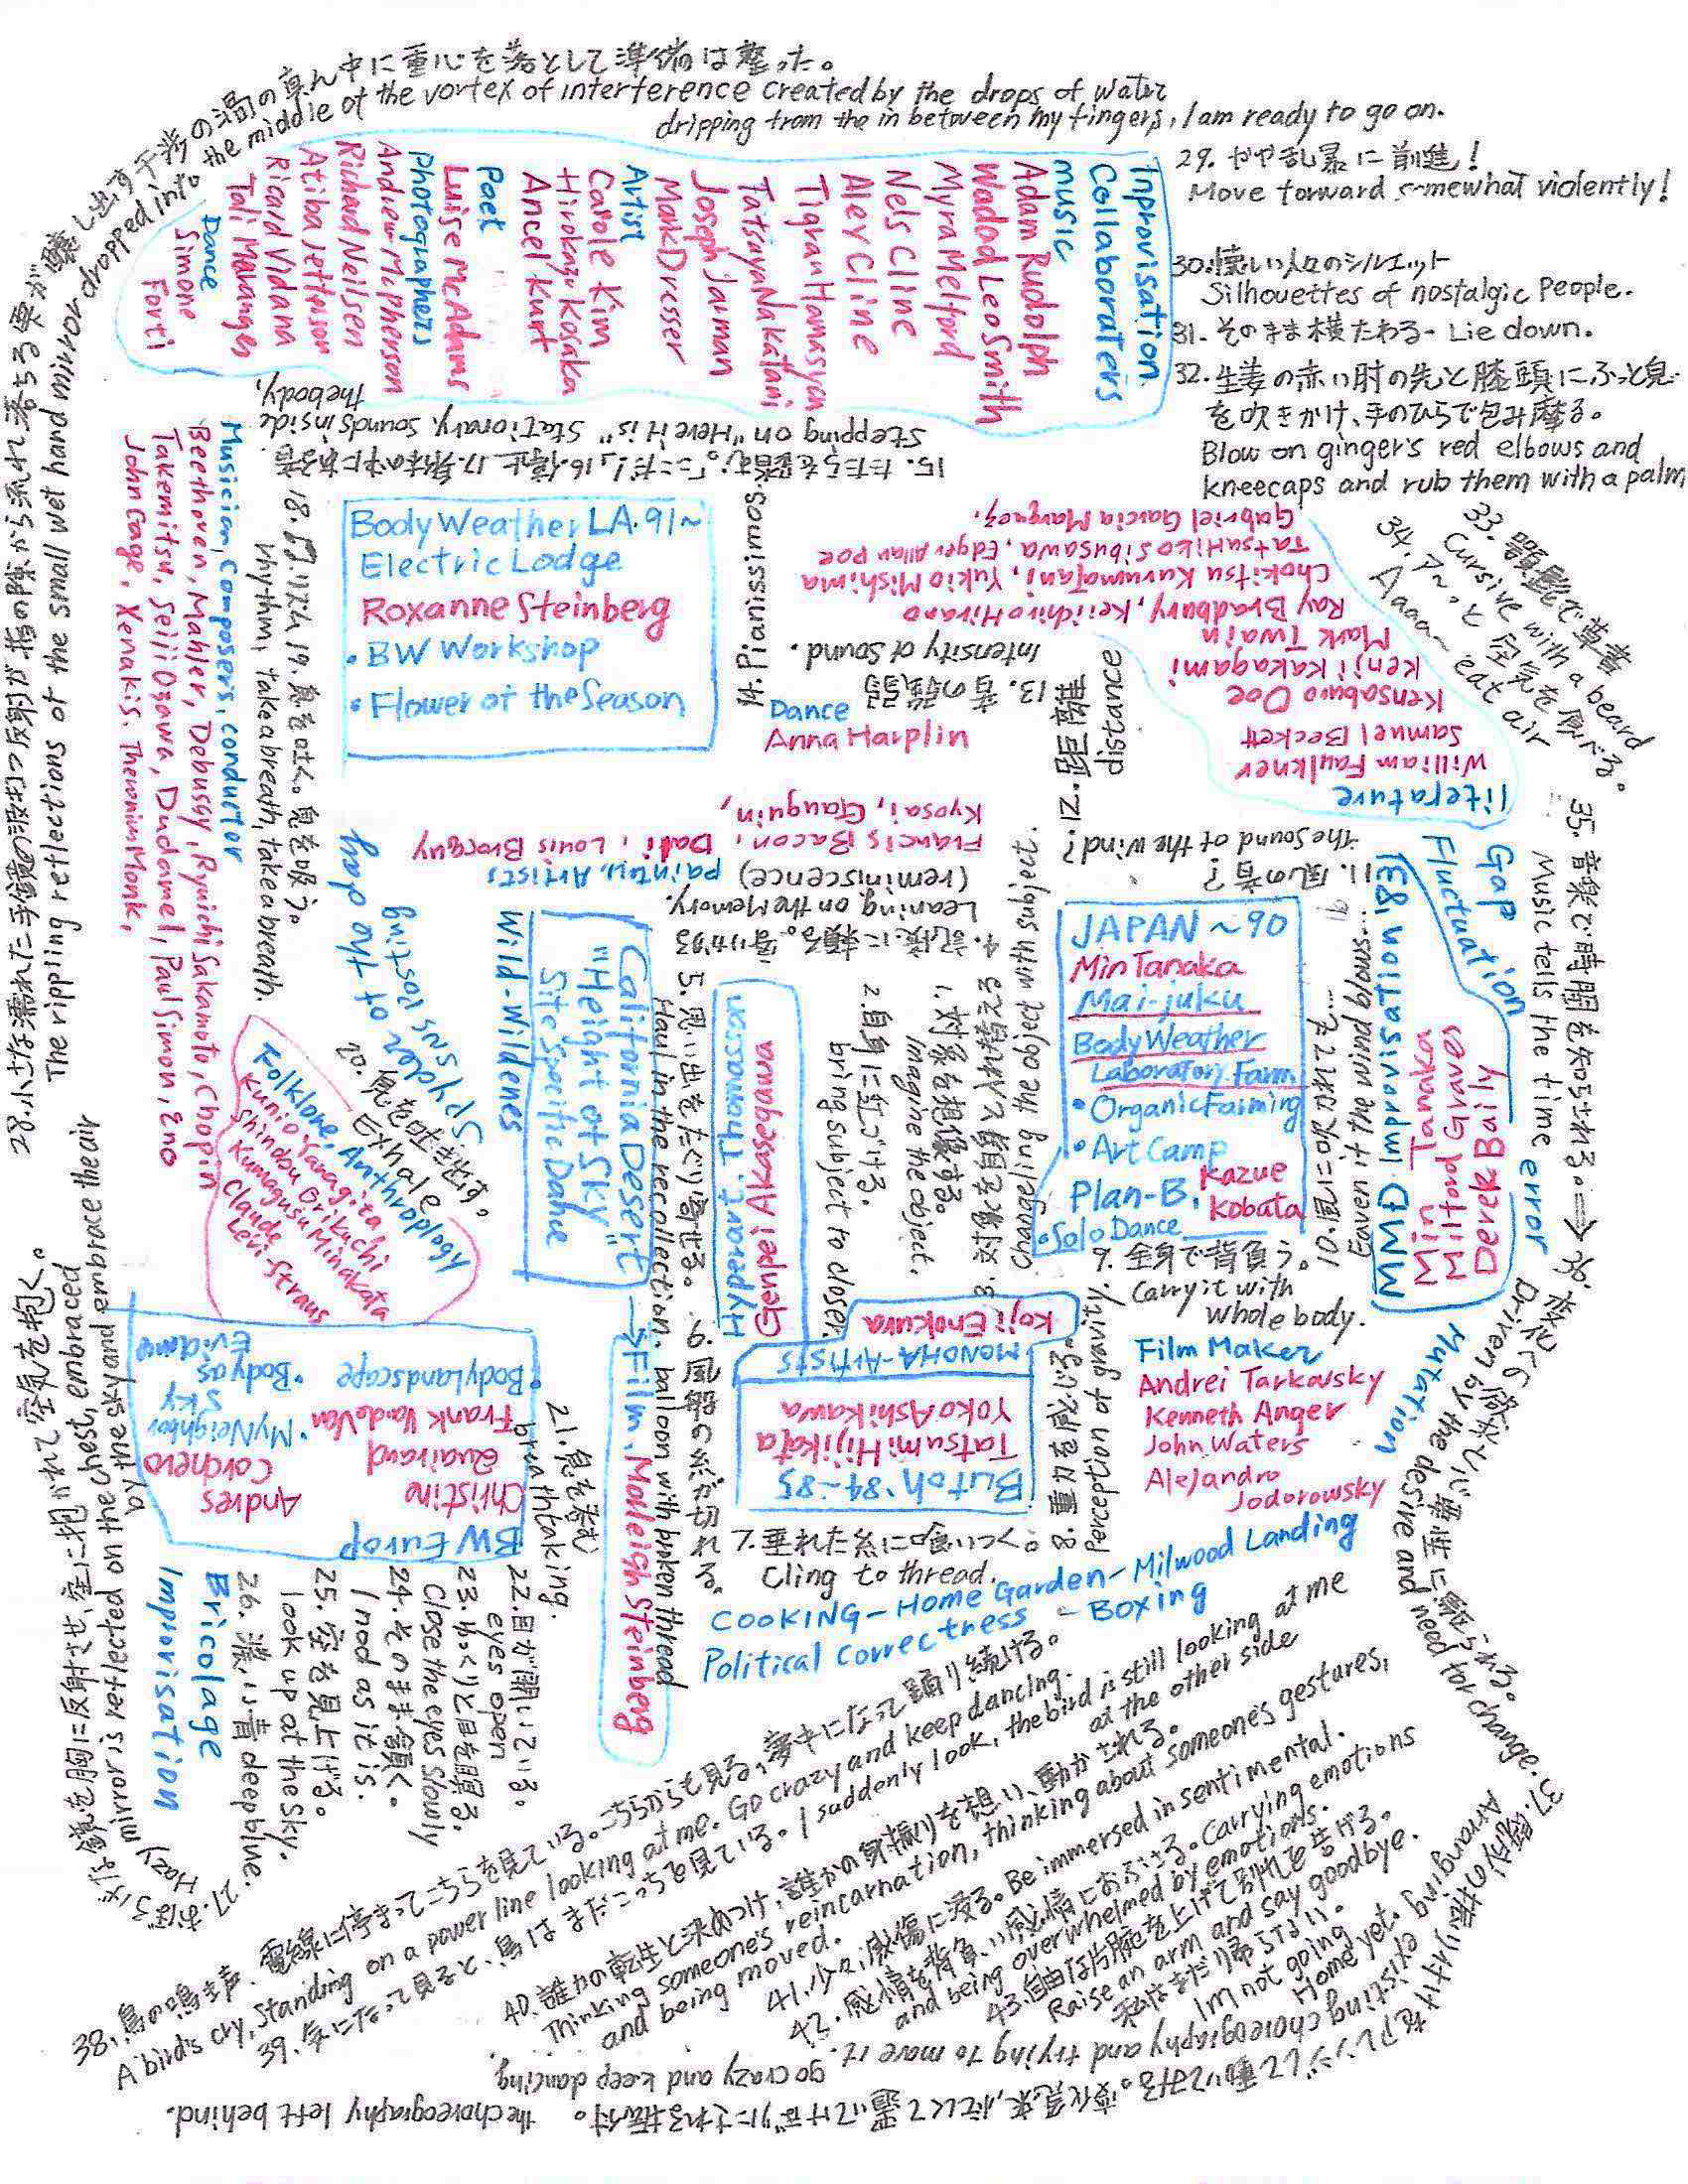 の渦の真ん中に重心を落として準備は整った。
the middle of the vortex of interference created by the drops of water
dripping from the in between my fingers, I am ready to go on.
29. やや乱暴に前進!
Move forward somewhat violently!
30. 懐しい人々のシルエット
Silhouettes of nostalgic People.
31. そのまま横たわる- Lie down.
32. 生姜の赤い肘の先と膝頭にふっと息
を吹きかけ、手のひらで包み摩る。
Blow on ginger's red elbows and
kneecaps and rub them with a palm
33. 顎髭で草書
Cursive with a beard
34. ア〜。と空気を食べる。
Aaaa~ eat air
35. 音楽で時間を知らされる。⇒
Music tells the time error
36.
Driven by the desire and need for change.
37.
Arranging existing choreography and trying to move it.
go crazy and keep dancing
the choreography left behind.
Inprovisation.
Collaboraters
music
Adam Rudolph
Wadad Leo Smith
Myra Melford
Nels Cline
Alex Cline
Tigran Hamasyan
Tatsuya Nakatani
Joseph Jarman
Mark Dresser
Artist
Carole Kim
Hirokazu Kosaka
Ancel Kurt
Poet
Luise McAdams
Photographers
Andrew McPherson
Richard Neilsen
Atiba Jefferson
Ricard Vidam
Dance
Simone
Forti
15. たたらを踏む。「ここだ!」16. 停止 17. 身体の中にある音
Stepping on "Here it is" Stationary, Sounds inside
the body,
14. Pianissimos.
13. 音の強弱
Intensity of Sound.
12. 距離
distance
11. 風の音?
The sound of the wind?
10. 風に吹かれても...
Eaven if the wind blows...
9. 全身で背負う。
Carry it with
whole body.
8. 重力を感じる。
Perception of gravity.
7. 垂れた糸に食いつく。
Cling to thread.
balloon with broken thread
5. 思い出をたぐり寄せる。
Haul in the recollection.
4. 記憶に頼る。寄りかかる
Leaning on the Memory.
(reminiscence)
Changeling the object with subject.
2. 自身に紅づける。
bring subject to closer.
1. 対象を想像する。
Imagine the object,
Body Weather LA. 91~
Electric Lodge
Roxanne Steinberg
• BW Workshop
• Flower of the Season
Dance
Anna Harplin
literature
William Faulkner
Samuel Beckett
Kensaburo Ooe
Kenji Kakagami
Mark Twain
Ray Bradbury, Keiichiro Hirano
Chokitsu Kurumatani, Yukio Mishima
TatsuHiko Sibusawa, Edger Allan Poe
Gabriel Garcia Marquez.
painters, Artists
Francis Bacon, Dali, Louis Brorguy
Kyosai, Gauguin,
Musician, Composers, conductor
Beethoven, Mahler, Debussy, Ryuichi Sakamoto, Chopin
Takemitsu, Seiji Ozawa, Dudamel, Paul Simon, Eno
John Cage, Xenakis. Theronim Monk,
18.
rhythm, take a breath, take a breath.
19. 息を吐く。息を吸う。
Spyder of the day
Spyders losting
20. 息を吐き出す。
Exhale
Folklore, Anthroplogy
Kunio Yanagita
Shinobu Orikuchi
Kumagusu Minakata
Claude
Levi Straus
Wild-Wildenes
California Desert
"Height of Sky"
Site Specific Dance
→ Film, Morleigh Steinberg
Hyperart: Thomasson
Genpei Akasegawa
JAPAN ~90
Min Tanaka
Mai-juku
Body Weather
Laboratory. Farm
• Organic Farming
• Art Camp
Plan-B. Kazue
Kobata
• Solo Dance
MMD Improvisation '83
Min Tanaka
Milford Graves
Derek Baily
Gap
Fluctuation
Mutation
Film Maker
Andrei Tarkovsky
Kenneth Anger
John Waters
Alejandro
Jodorowsky
Koji Enokura
MONOHA-Artists
Butoh '84~85
Tatsumi Hijikata
Yoko Ashikawa
BW Europ
Christine
Quoiraud
Andres
Corchero
Frank VandeVen
• Body Landscape
• My Neighbor
Sky
• Body as
Evidance
COOKING - Home Garden - Milwood Landing
Political correctness - Boxing
21. 息を呑む
breath taking.
22. 目が開いている。
eyes open
23. ゆっくりと目を瞑る。
Close the eyes slowly
24. そのまま頷く。
I nod as it is.
25. 空を見上げる。
look up at the sky.
26. 濃い青 deep blue.
Bricolage
Improvisation
27. おぼろげな鏡を胸に反射させ、空に抱かれて空気を抱く。
Hazy mirror is reflected on the chest, embraced
by the sky and embrace the air
28. 小さな濡れた手鏡の波打つ反射が指の隙から流れ落ちる雫が醸し出す干渉
The rippling reflections of the small wet hand mirror dropped into
38. 鳥の鳴き声、電線に停まってこちらを見ている。こちらからも見る。夢中になって踊り続ける。
A bird's cry, standing on a power line looking at me. Go crazy and keep dancing.
39. 気になって見ると、鳥はまだこっちを見ている。I suddenly look, the bird is still looking at me
at the other side
40. 誰かの転生と決めつけ、誰かの身振りを想い、動かされる。
Thinking someone's reincarnation, thinking about someone's gestures,
and being moved.
41. 少々、感傷に浸る。Be immersed in sentimental.
42. 感情を背負い、感情におぶさる。Carrying emotions
and being overwhelmed by emotions.
43. 自由な片腕を上げて別れを告げる。
Raise an arm and say goodbye.
私はまだ帰らない。
Im not going
Home yet.